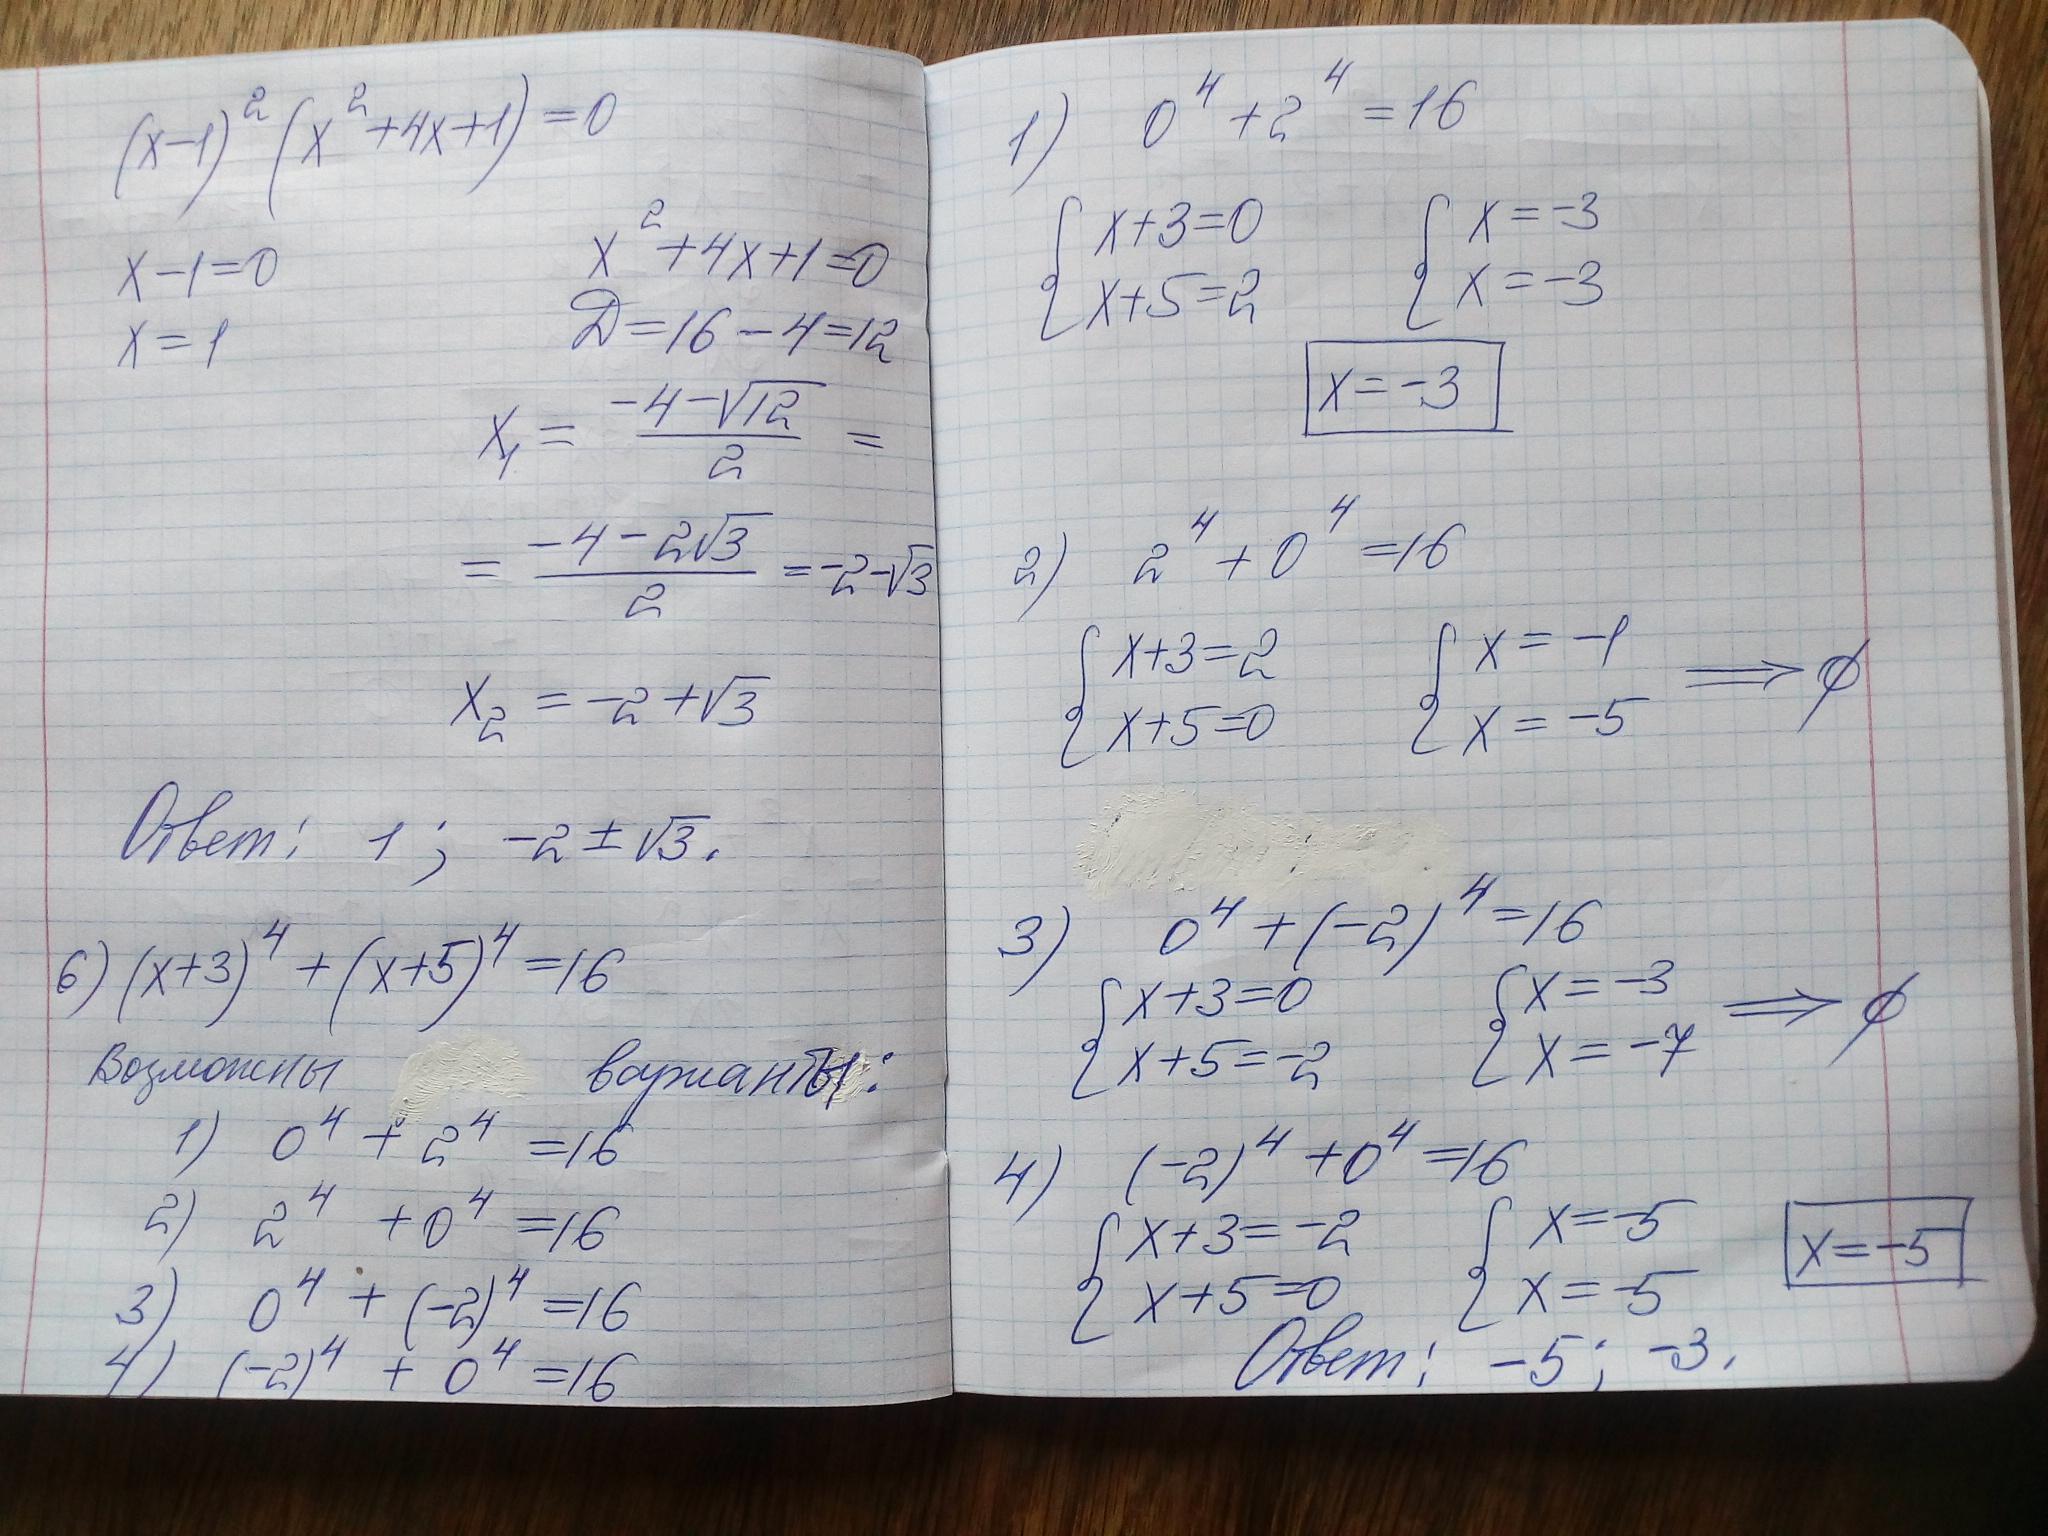 (x-1)² (x²+4x+1) = 0
x-1=0
x=1
x²+4x+1=0
D=16-4=12
x₁ = (-4-√12)/2 =
= (-4-2√3)/2 = -2-√3
x₂ = -2+√3
Ответ: 1; -2±√3.
6) (x+3)⁴ + (x+5)⁴ = 16
Возможны варианты:
1) 0⁴ + 2⁴ = 16
2) 2⁴ + 0⁴ = 16
3) 0⁴ + (-2)⁴ = 16
4) (-2)⁴ + 0⁴ = 16
1) 0⁴ + 2⁴ = 16
{ x+3=0 { x=-3
{ x+5=2 { x=-3
x=-3
2) 2⁴ + 0⁴ = 16
{ x+3=2 { x=-1 ⟹ ∅
{ x+5=0 { x=-5
3) 0⁴ + (-2)⁴ = 16
{ x+3=0 { x=-3 ⟹ ∅
{ x+5=-2 { x=-7
4) (-2)⁴ + 0⁴ = 16
{ x+3=-2 { x=-5 x=-5
{ x+5=0 { x=-5
Ответ: -5; -3.